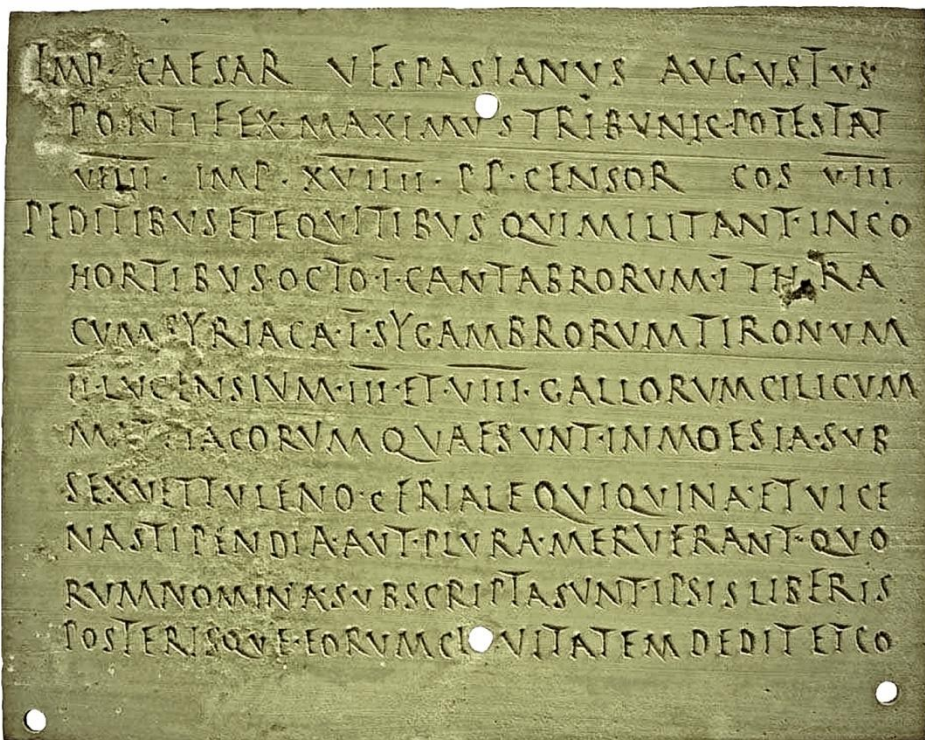 IMP · CAESAR VESPASIANVS AVGVSTVS
PONTIFEX · MAXIMVS TRIBVNIC · POTESTAT
VIIII · IMP · XVIIII · P P · CENSOR COS VIII
PEDITIBVS ET EQVITIBVS QVI MILITANT · IN CO
HORTIBVS · OCTO · I · CANTABRORVM · I THRA
CVM SYRIACA · I · SYGAMBRORVM TIRONVM
II · LVCENSIVM · III · ET · VIII · GALLORVM CILICVM
MATTIACORVM QVAE SVNT · IN MOESIA · SVB
SEX VETTVLENO · CERIALE QVI QVINA · ET VICE
NA STIPENDIA · AVT · PLVRA · MERVERANT · QVO
RVM NOMINA · SVBSCRIPTA SVNT · IPSIS LIBERIS
POSTERISQVE · EORVM CIVITATEM DEDIT ET CO